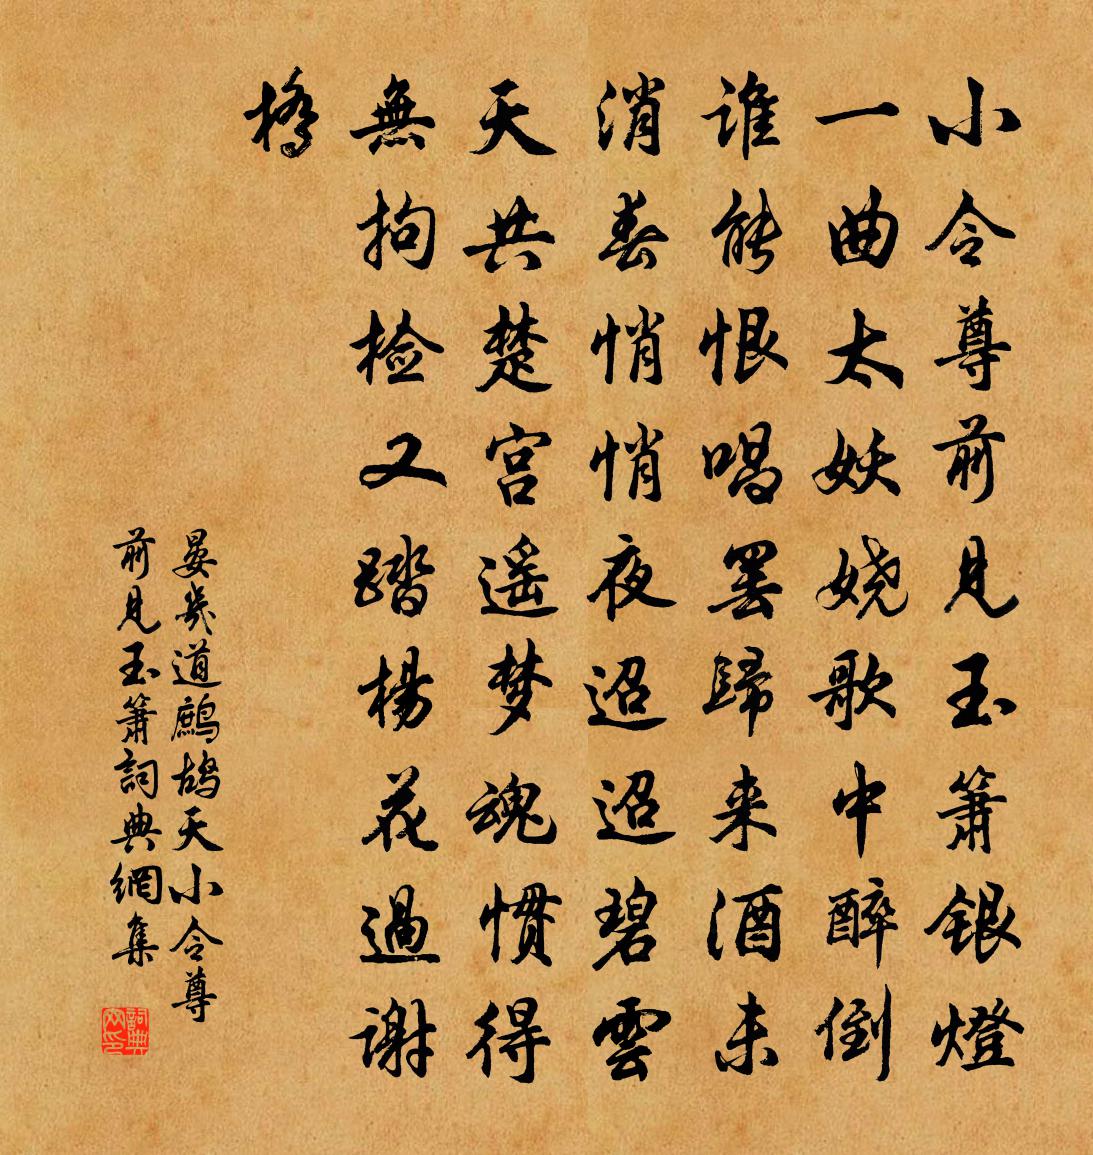 小令尊前見玉簫銀燈
一曲太妖娆歌中醉倒
谁能恨唱罢歸来酒未
消春悄悄夜迢迢碧雲
天共楚宫遥梦魂惯得
無拘检又踏楊花過谢
橋
晏幾道鷓鴣天小令尊
前見玉簫詞典網集
詞典
网印